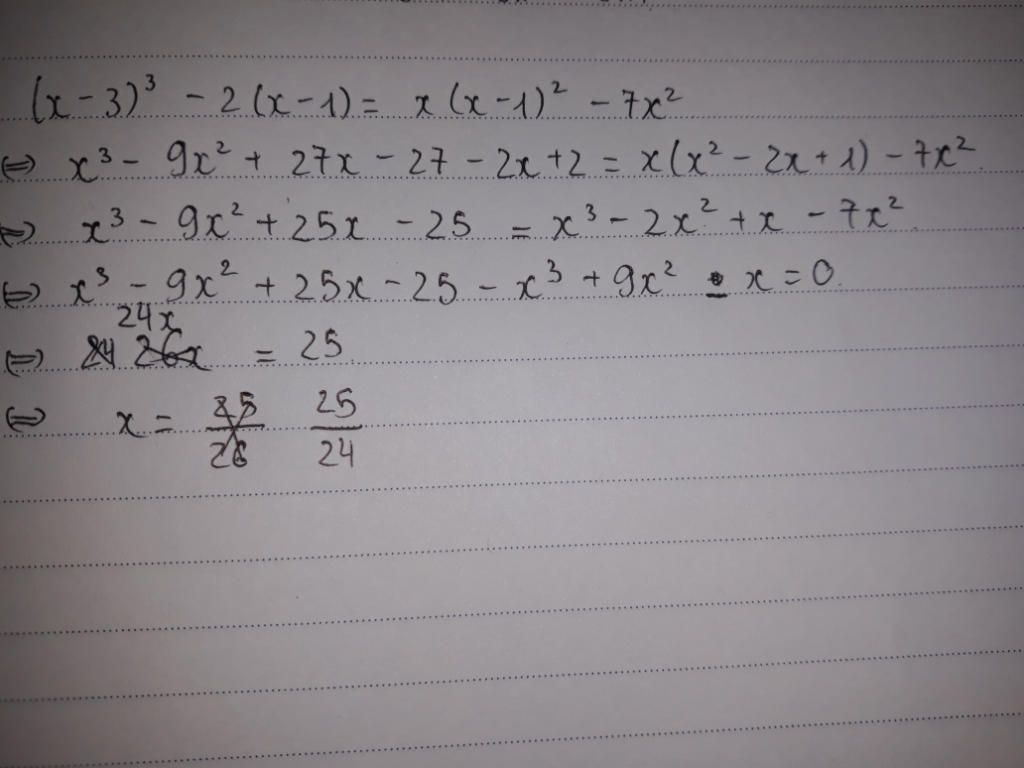 (x - 3)³ - 2(x - 1) = x(x - 1)² - 7x²
⇔ x³ - 9x² + 27x - 27 - 2x + 2 = x(x² - 2x + 1) - 7x²
⇔ x³ - 9x² + 25x - 25 = x³ - 2x² + x - 7x²
⇔ x³ - 9x² + 25x - 25 - x³ + 9x² - x = 0
24x
⇔ 24 26x = 25
⇔ x = 25/26 25/24